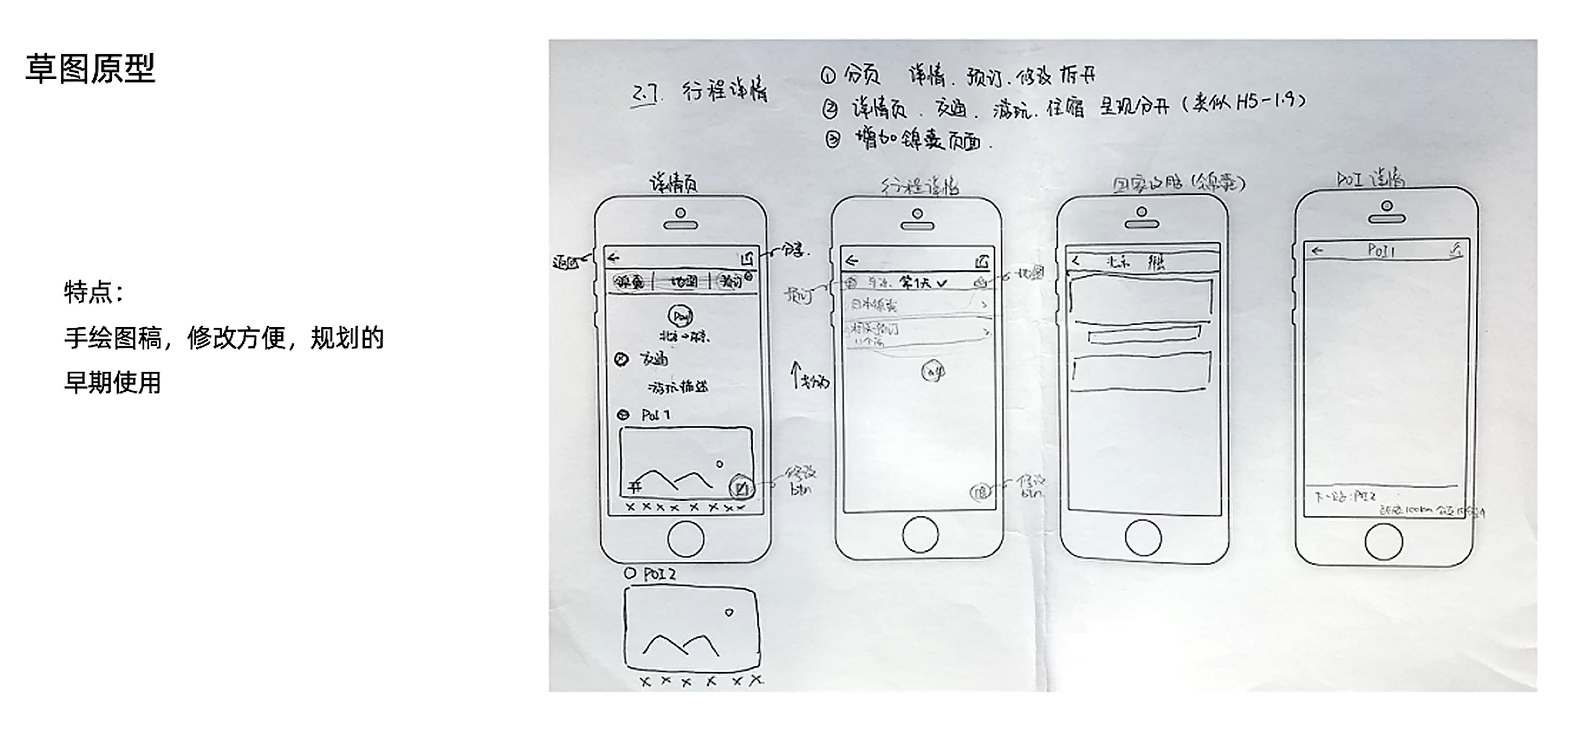 草图原型
特点：
手绘图稿，修改方便，规划的
早期使用
2.7. 行程详情
① 分页 详情、预订、修改 拆开
② 详情页、交通、游玩、住宿 呈现分开（类似H5-1.9）
③ 增加锦囊页面.
详情页
返回
分享.
锦囊 地图 预订
交通
游玩描述
POI 1
修改
btn
××××××××
POI 2
××××××
行程详情
预订
第1天
地图
修改
btn
（锦囊）
北京
POI 详情
POI 1
下一站：POI 2
100km